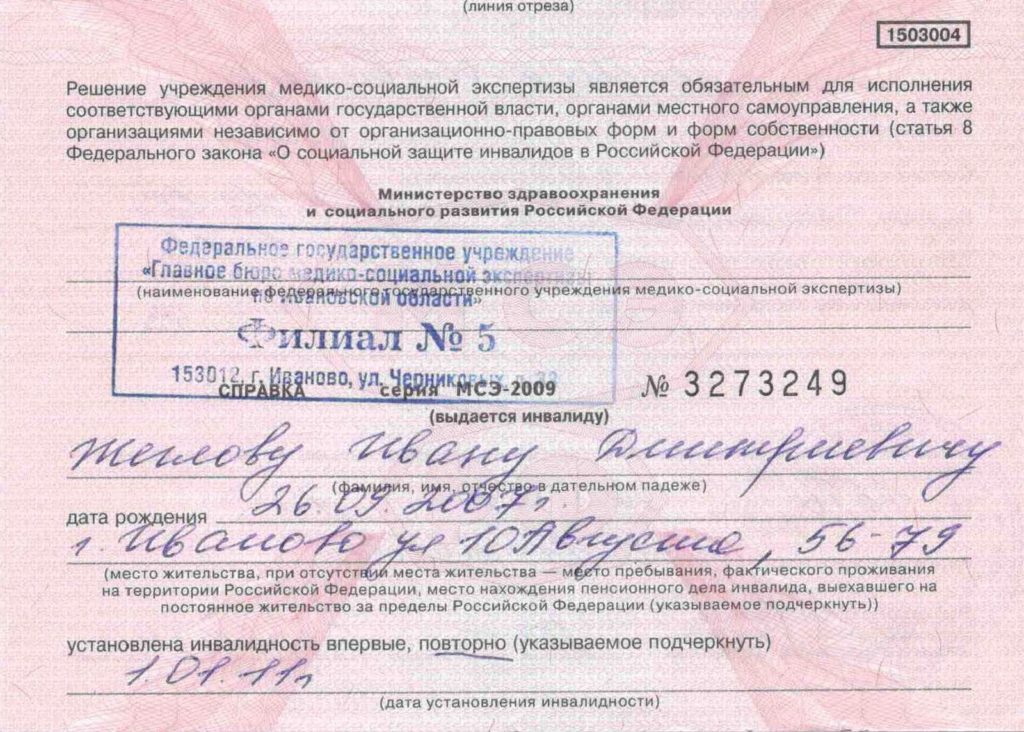 (линия отреза)
1503004
Решение учреждения медико-социальной экспертизы является обязательным для исполнения
соответствующими органами государственной власти, органами местного самоуправления, а также
организациями независимо от организационно-правовых форм и форм собственности (статья 8
Федерального закона «О социальной защите инвалидов в Российской Федерации»)
Министерство здравоохранения
и социального развития Российской Федерации
Федеральное государственное учреждение
«Главное бюро медико-социальной экспертизы
(наименование федерального государственного учреждения медико-социальной экспертизы)
по Ивановской области»
Филиал № 5
153012, г. Иваново, ул. Черниковых
СПРАВКА серия МСЭ-2009 № 3273249
(выдается инвалиду)
Жеглову Ивану Дмитриевичу
(фамилия, имя, отчество в дательном падеже)
дата рождения 26.09.2007г.
г. Иваново ул 10 Августа, 56-79
(место жительства, при отсутствии места жительства — место пребывания, фактического проживания
на территории Российской Федерации, место нахождения пенсионного дела инвалида, выехавшего на
постоянное жительство за пределы Российской Федерации (указываемое подчеркнуть))
установлена инвалидность впервые, повторно (указываемое подчеркнуть)
1.01.11г
(дата установления инвалидности)